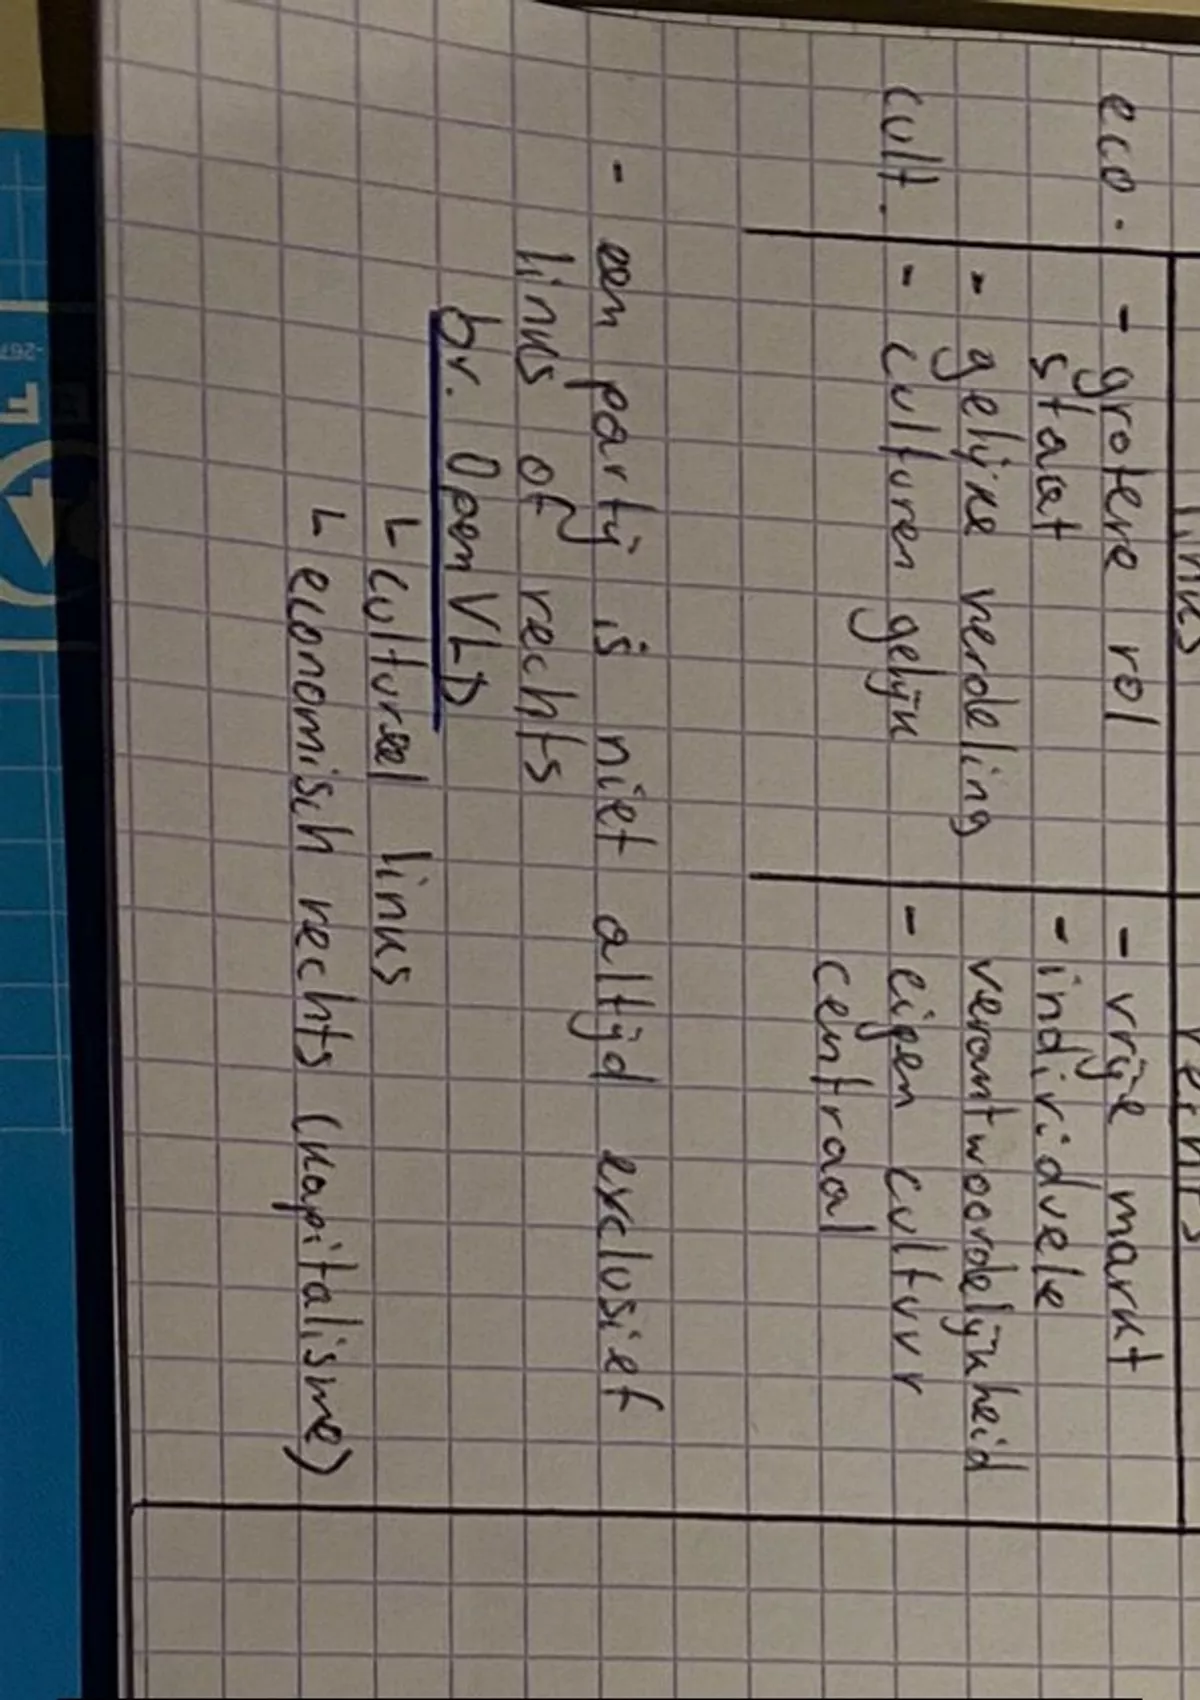 links rechts
eco. - grotere rol - vrije markt
staat - individuele
- gelijke verdeling verantwoordelijkheid
cult. - culturen gelijk - eigen cultuur
centraal
- een partij is niet altijd exclusief
links of rechts
bv. Open VLD
└ cultureel links
└ economisch rechts (kapitalisme)